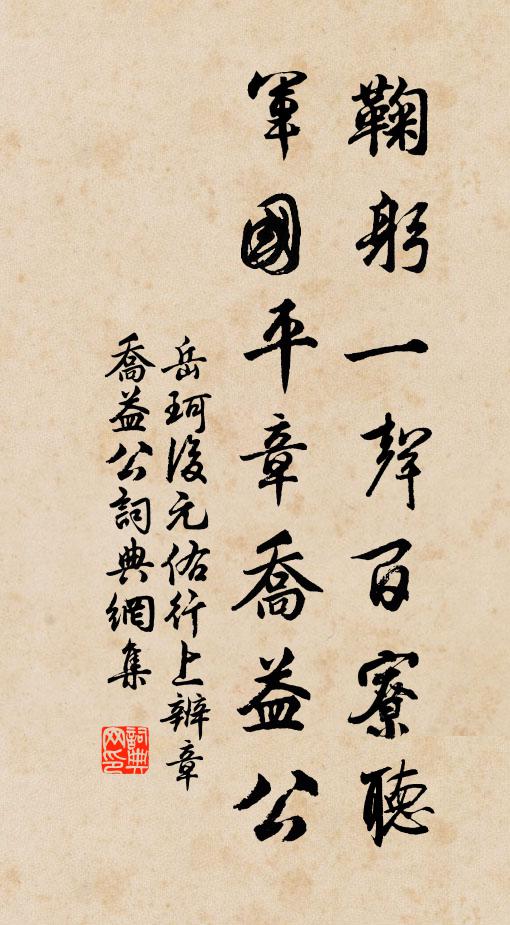 鞠躬一聲百寮聽
軍國平章喬益公
岳珂後元佑行上辨章
喬益公詞典網集
詞典网印